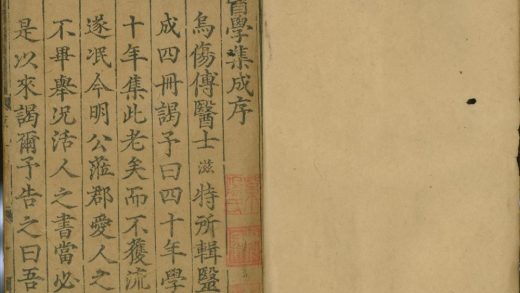 醫學集成序
烏傷傅醫士滋特所輯醫
成四冊謁予曰四十年學
十年集此老矣而不獲流
遂泯今明公蒞郡愛人之
不畢舉況活人之書當必
是以來謁爾予告之曰吾